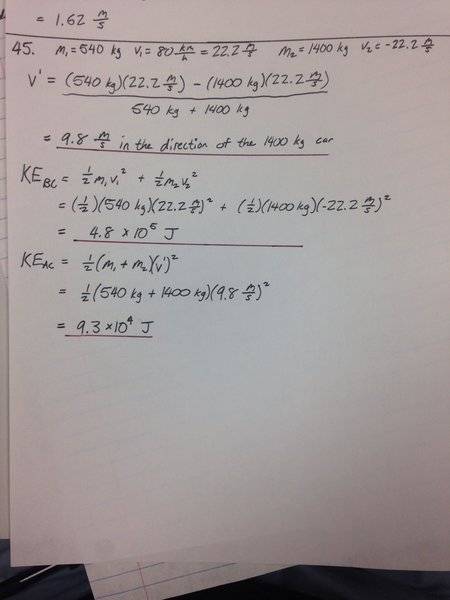 = 1.62 m/s
45. m₁ = 540 kg v₁ = 80 km/h = 22.2 m/s m₂ = 1400 kg v₂ = -22.2 m/s
v' = (540 kg)(22.2 m/s) - (1400 kg)(22.2 m/s)
540 kg + 1400 kg
= 9.8 m/s in the direction of the 1400 kg car
KE_BC = ½m₁v₁² + ½m₂v₂²
= (½)(540 kg)(22.2 m/s)² + (½)(1400 kg)(-22.2 m/s)²
= 4.8 × 10⁵ J
KE_AC = ½(m₁ + m₂)(v')²
= ½(540 kg + 1400 kg)(9.8 m/s)²
= 9.3 × 10⁴ J